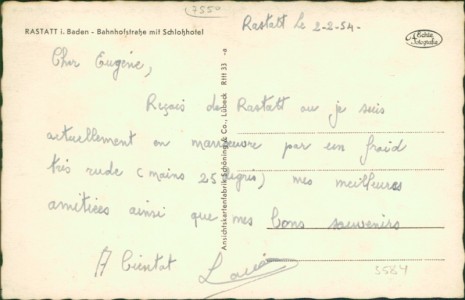 7550
Rastatt le 2-2-54-
RASTATT i. Baden - Bahnhofstraße mit Schloßhotel
Echte Fotografie
Cher Eugène,
Reçois de Rastatt ou je suis
actuellement en manoeuvre par un froid
très rude (moins 25 degrés) mes meilleures
amitiées ainsi que mes bons souvenirs
A bientat
Ansichtskartenfabrik Schöning & Co., Lübeck Ratt 33 -a
5584